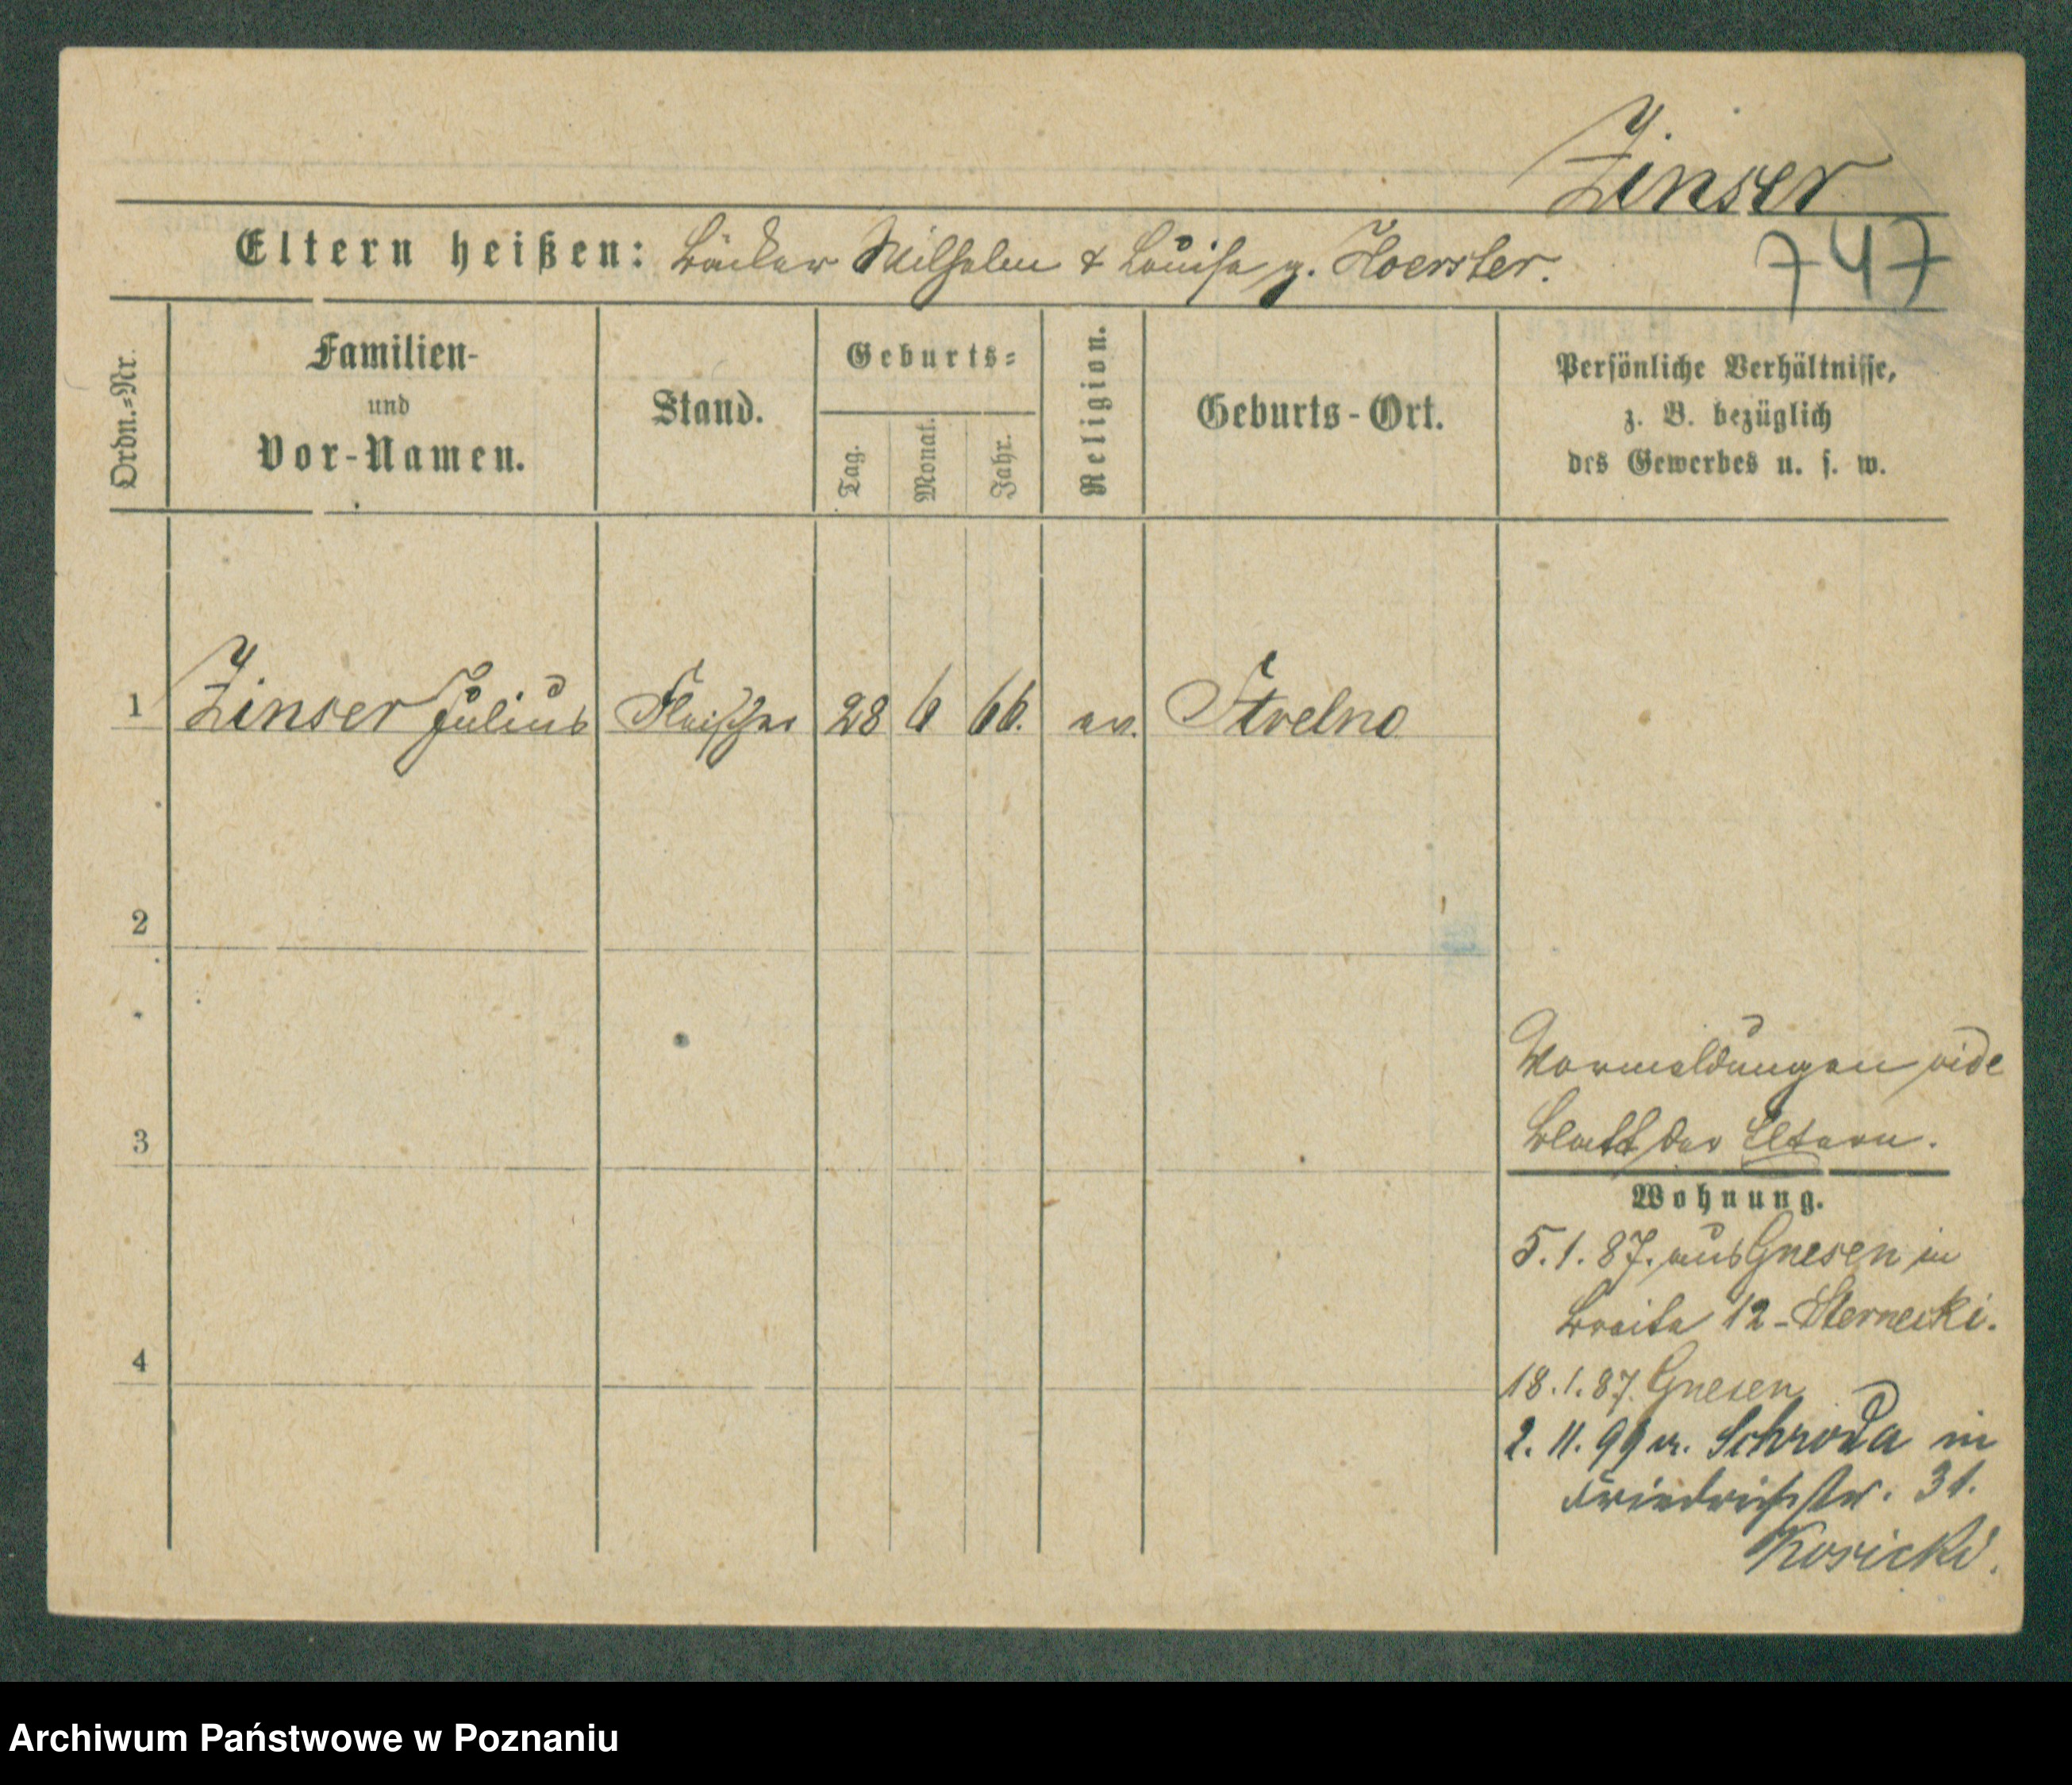 Zinser
747
Eltern heißen: Bäcker Wilhelm & Louise g. Hoerster.
Ordn.=Nr.
Familien-
und
Vor-Namen.
Stand.
Geburts=
Tag.
Monat.
Jahr.
Religion.
Geburts-Ort.
Persönliche Verhältnisse,
z. B. bezüglich
des Gewerbes u. s. w.
1 Zinser Julius Fleischer 28 6 66. ev. Strelno
2
3
4
Vormeldungen vide
Blatt der Eltern.
Wohnung.
5.1.87. aus Gnesen in
Breite 12 - Sternecki.
18.1.87. Gnesen
2. 11. 99 v. Schroda in
Friedrichstr. 31.
Kosicki.
Archiwum Państwowe w Poznaniu